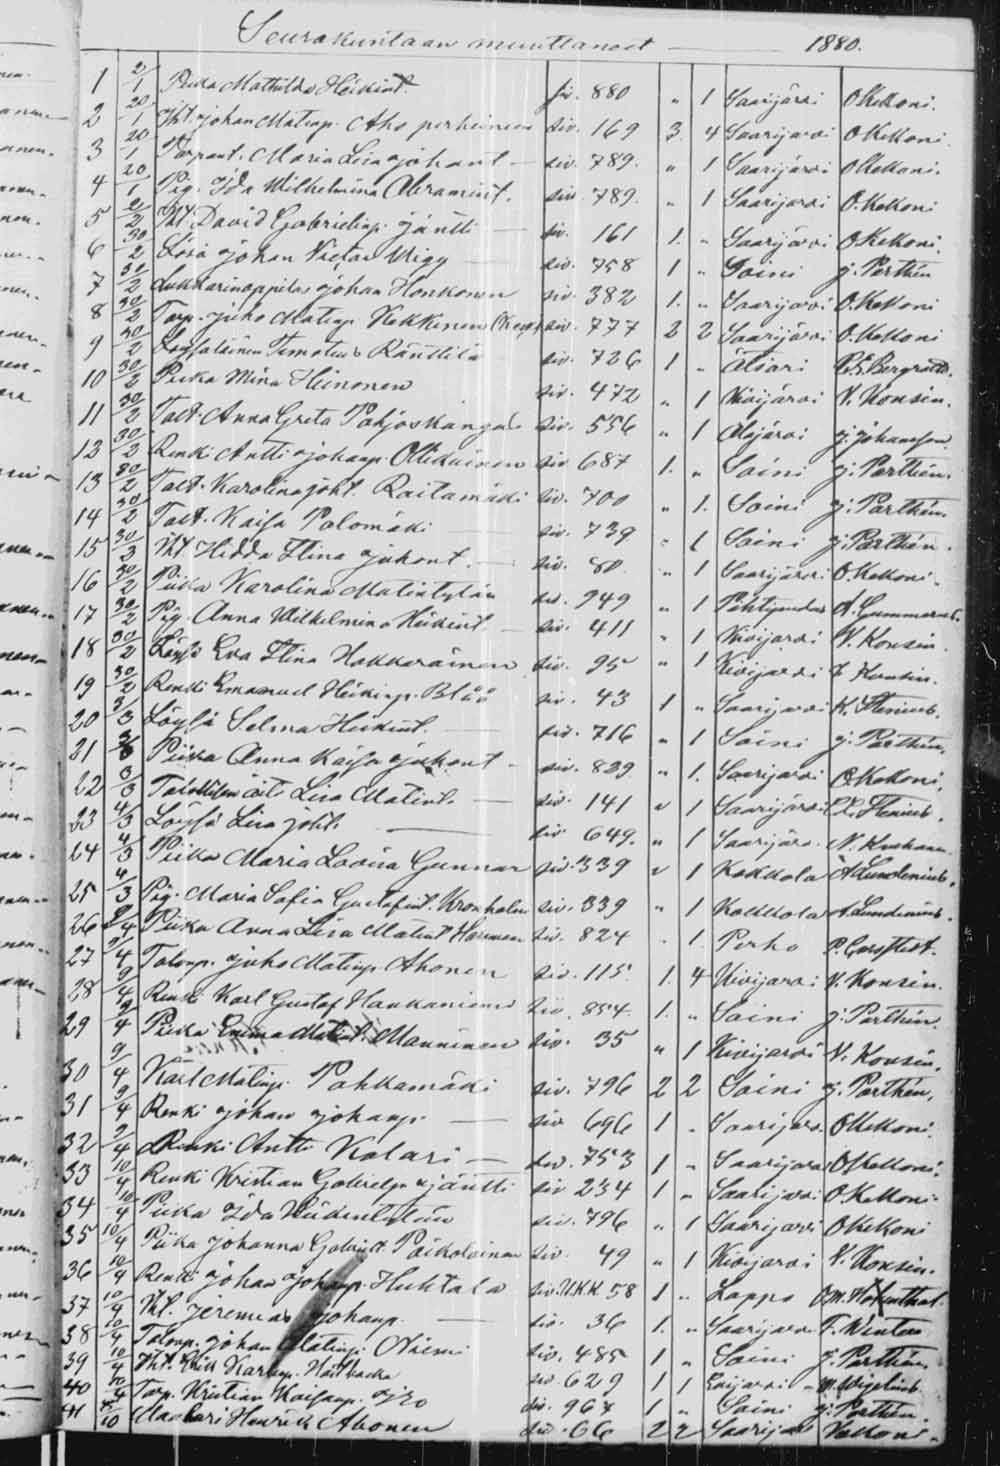 Seurakuntaan muuttaneet — 1880.
1 2/1 Piika Mathilda Heikint. siv. 880 " 1 Saarijärvi O Kekoni.
2 20/1 Itst. Johan Matinp. Aho perheineen siv. 169 3. 4 Saarijärvi O Kekoni
3 20/1 Torpant. Maria Lisa Johant — siv. 789. " 1 Saarijärvi O Kekoni.
4 20/1 Pig. Ida Wilhelmina Abramint. siv. 789. " 1 Saarijärvi O. Kekoni
5 2/2 Itst David Gabrielinp. Jäntti — siv. 161 1. " Saarijärvi O Kekoni.
6 30/2 Lois Johan Victor Wigg — siv. 758 1 " Soini J. Parthén
7 30/2 Lukkarinoppilas Johan Honkonen siv. 382 1. " Saarijärvi O. Kekoni
8 30/2 Torp. Juho Matinp. Kekkinen siv. 777 2 2 Saarijärvi O. Kekoni
9 30/2 Timoteus Ränttilä siv. 726 1 " Ätsäri
10 30/2 Piika Mina Heinonen siv. 472 " 1 Kivijärvi V. Konsin.
11 30/2 Talt. Anna Greta Pohjoskangas siv. 556 " 1 Alajärvi J. Johansson
12 30/2 Renki Antti Johanp. Ollikainen siv 687 1. " Soini J. Parthén.
13 30/2 Talt. Karolina Joht. Raitamäki siv. 700 " 1. Soini J. Parthén.
14 30/2 Talt. Kaisa Palomäki — siv. 739 " 1 Soini J. Parthén.
15 30/2 Itst Hedda Stina Jukont. — siv. 80 " 1 Saarijärvi O. Kekoni.
16 30/2 Piika Karolina Matintytär siv. 949 " 1 Pihtipudas A. Gummerus.
17 30/2 Pig. Anna Wilhelmina Heikint — siv. 411 " 1 Kivijärvi V. Konsin.
18 30/2 Löysä Eva Stina Hakkarainen siv. 95 " 1 Kivijärvi V Konsin.
19 30/2 Renki Emanuel Heikinp. Blåå siv. 43 1 " Saarijärvi K. Stenius.
20 3/3 Löysä Selma Heikint. — siv. 716 " 1 Soini J. Parthén.
21 3/3 Piika Anna Kaisa Jukont — siv. 829 " 1. Saarijärvi O Kekoni.
22 3/3 äiti Lisa Matint. — siv. 141 " 1 Saarijärvi Stenius.
23 4/3 Löysä Lisa Joht. — siv 649. " 1 Saarijärv.
24 4/3 Piika Maria Lovisa Gunnar siv. 339 " 1 Kokkola A Lundenius.
25 4/3 Pig. Maria Sofia Gustafint. Kronholm siv. 339 " 1 Kokkola A. Lundenius.
26 2/4 Piika Anna Lisa Matint siv. 824 " 1. Perho
27 2/4 Talonp. Juho Matinp. Ahonen siv. 115. 1. 4 Kivijärvi V. Konsin.
28 9/4 Renki Karl Gustaf Haukaniemi siv. 854. 1. " Soini J. Parthén.
29 9/4 Piika Emma Matint. Manninen siv. 35 " 1 Kivijärvi V. Konsin.
30 9/4 Karl Matinp. Pohkamäki siv. 796 2 2 Soini J. Parthén.
31 9/4 Renki Johan Johanp. — siv 696 1 . Saarijärv. O Kekoni.
32 9/4 Renki Antti Kalari — siv. 753 1 " Saarijärvi O Kekoni.
33 10/4 Renki Kristian Gabrielp Jäntti siv 234 1 " Saarijärvi O. Kekoni
34 10/4 Piika Ida Heikintytär siv. 796 " 1 Saarijärvi O Kekoni
35 10/4 Piika Johanna Gabrielt. Paikolainen siv. 49 " 1 Kivijärvi V. Konsin.
36 10/4 Renki Johan Johanp. Huhtala siv. U.K.K 58 1 " Lappo
37 10/4 Itst. Jeremias Johanp. — siv. 36 1. " Saarijärv. F. Winter
38 10/4 Talonp. Johan Matinp. Niemi siv. 485 1 " Soini J. Parthén.
39 10/4 Itst. Erik Karlinp. siv 629 1 1
40 10/4 Torp. Kristian Kaisanp. siv. 967 1 " Soini J. Parthén.
41 4/10 Maakari Henrik Ahonen siv. 66 2 2 Saarijär Kekoni.